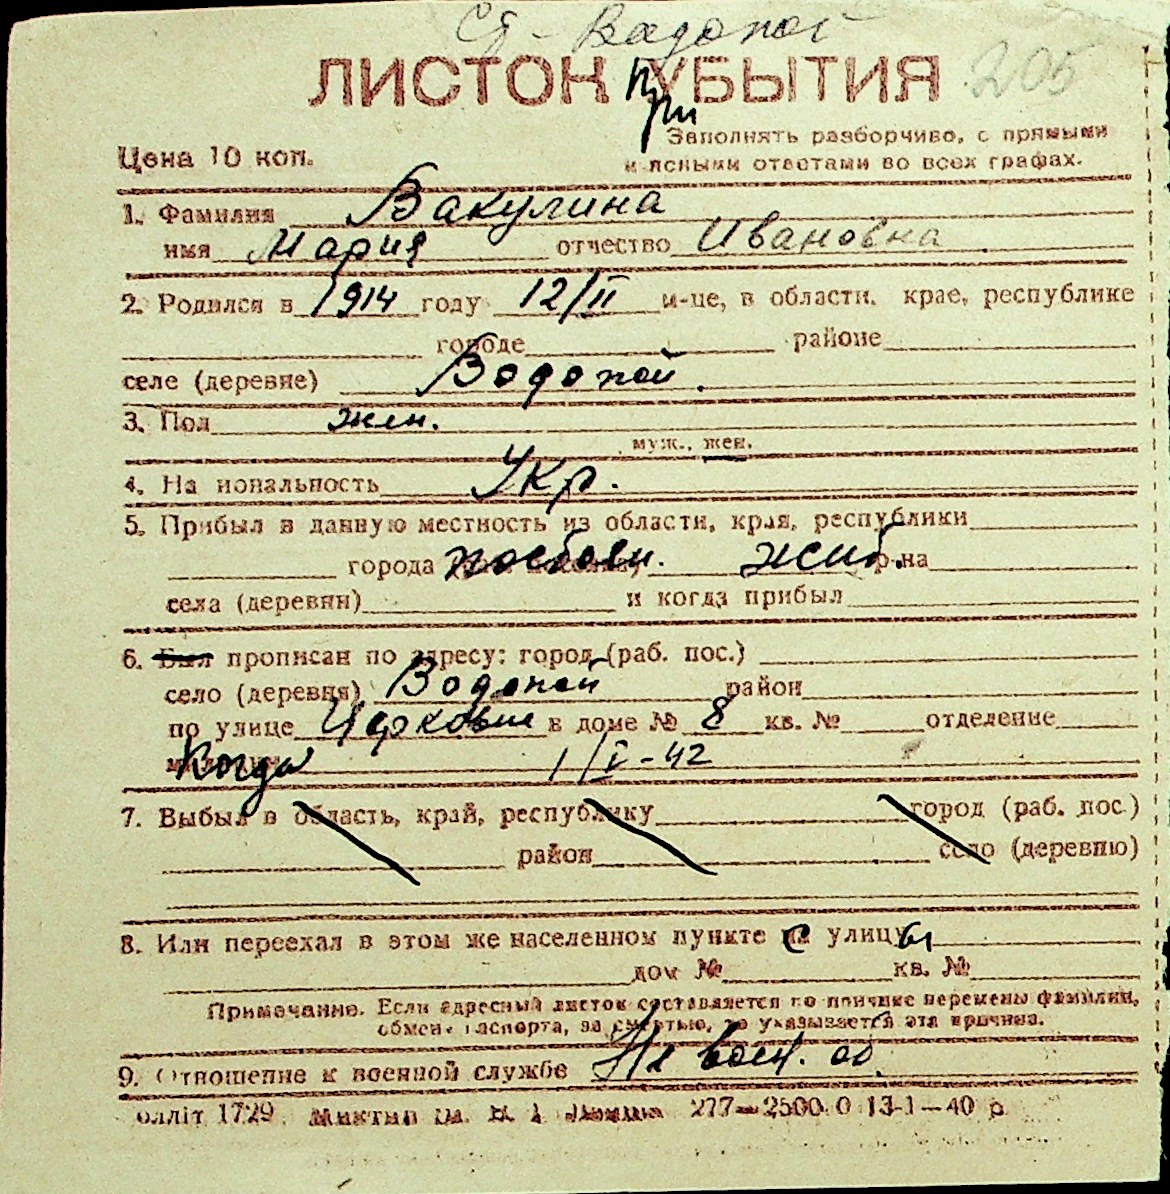 Водопой
205
ЛИСТОК УБЫТИЯ
При
Заполнять разборчиво, с прямыми
Цена 10 коп.
и ясными ответами во всех графах.
1. Фамилия Вакулина
имя Мария отчество Ивановна
2. Родился в 1914 году 12/II м-це, в области, крае, республике
городе районе
селе (деревне) Водопой.
3. Пол жен.
муж., жен.
4. На иональность Укр.
5. Прибыл в данную местность из области, края, республики
города жиб. р-на
села (деревни) и когда прибыл
6. Был прописан по адресу: город (раб. пос.)
село (деревня) Водопой район
по улице в доме № 8 кв. № отделение
Когда 1/I-42
7. Выбыл в область, край, республику город (раб. пос.)
район село (деревню)
8. Или переехал в этом же населенном пункте с улицы
дом № кв. №
Примечание. Если адресный листок составляется по причине перемены фамилии,
обмене паспорта, за смертью, то указывается эта причина.
9. Отношение к военной службе Не воен. об.
олліт 1729 277—2500.0 13-1—40 р